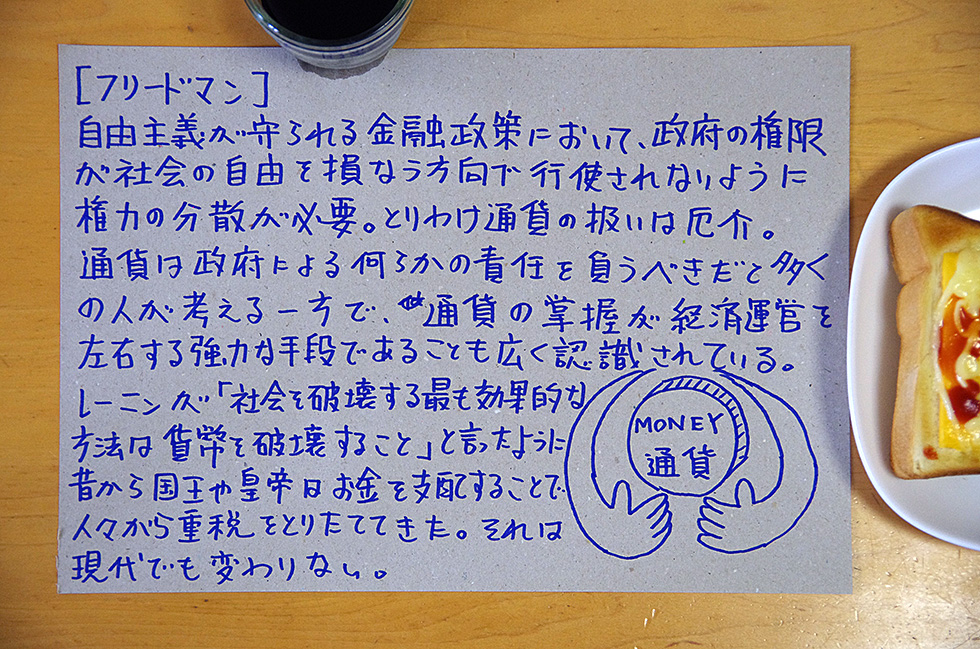 [フリードマン]
自由主義が守られる金融政策において、政府の権限
が社会の自由を損なう方向で行使されないように
権力の分散が必要。とりわけ通貨の扱いは厄介。
通貨は政府による何らかの責任を負うべきだと多く
の人が考える一方で、通貨の掌握が経済運営を
左右する強力な手段であることも広く認識されている。
レーニンが「社会を破壊する最も効果的な
方法は貨幣を破壊すること」と言ったように
昔から国王や皇帝はお金を支配することで
人々から重税をとりたててきた。それは
現代でも変わりない。
MONEY
通貨